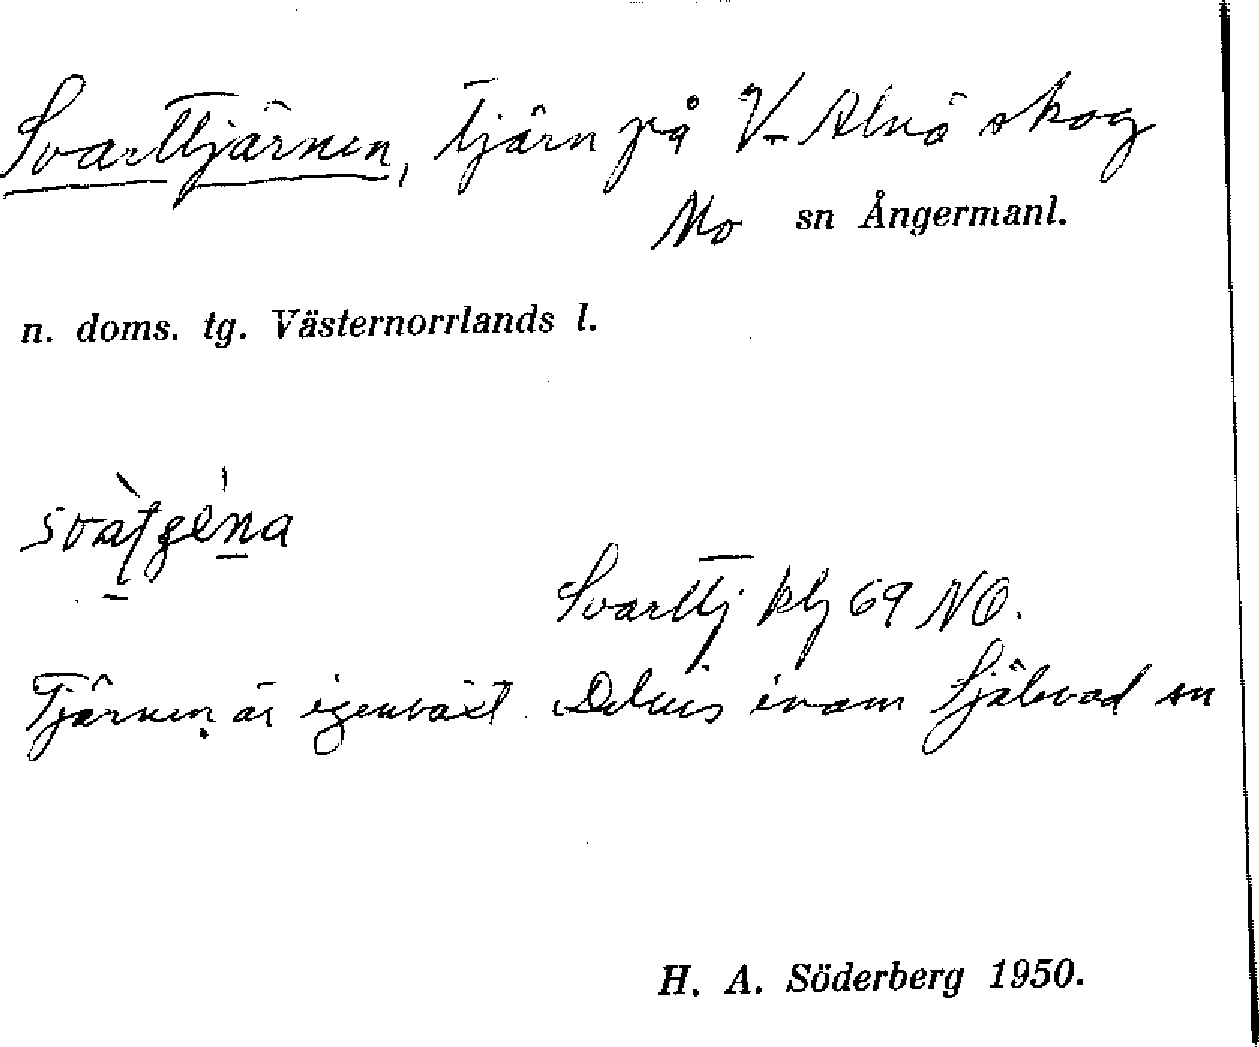 Svarttjärnen, tjärn på V. Alnö skog
Mo sn Ångermanl.
n. doms. tg. Västernorrlands l.
Svarttj kbl 69 NO.
Tjärnen är igenväxt. Delvis inom Själevad sn
H. A. Söderberg 1950.